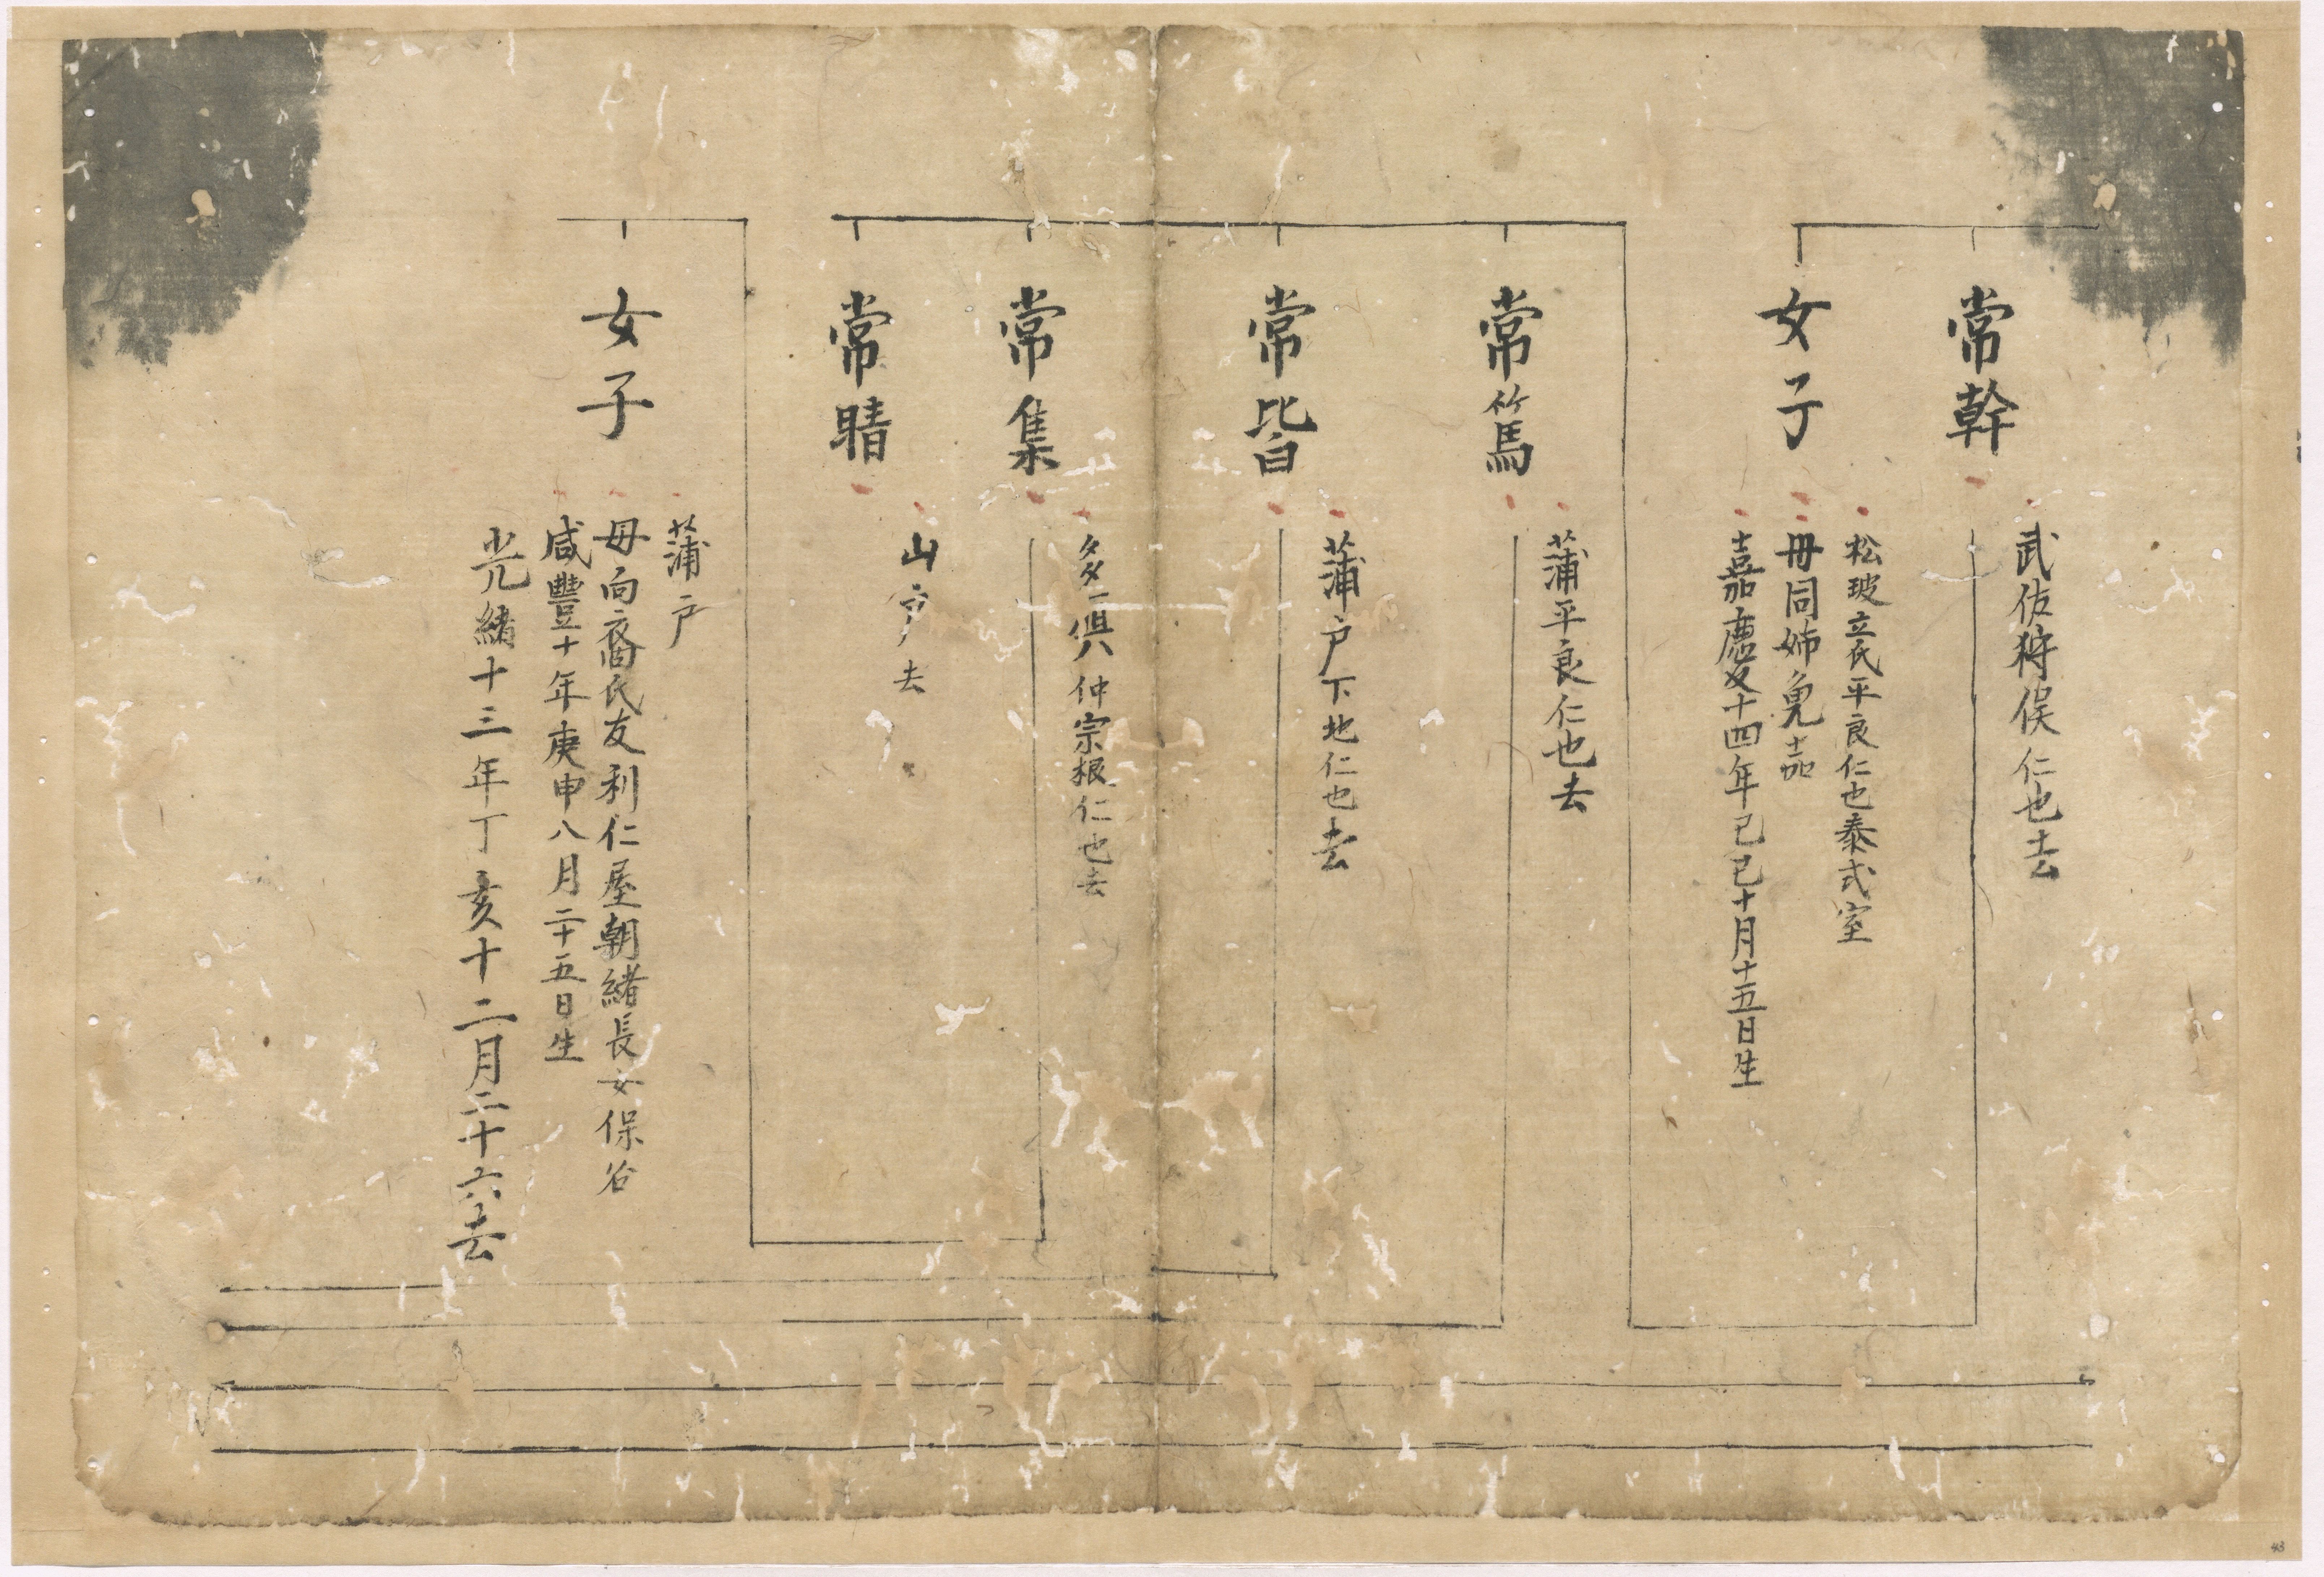 常幹
武佐狩俣仁也去
女子
松玻立氏平良仁也泰式室
母同姉免嘉
嘉慶十四年己巳十月十五日生
常篤
蒲平良仁也去
常皆
蒲戸下地仁也去
常集
多一俱仲宗根仁也去
常晴
山戸去
女子
蒲戸
母向裔氏友利仁屋朝緒長女保谷
咸豐十年庚申八月二十五日生
光緒十三年丁亥十二月二十六去
43